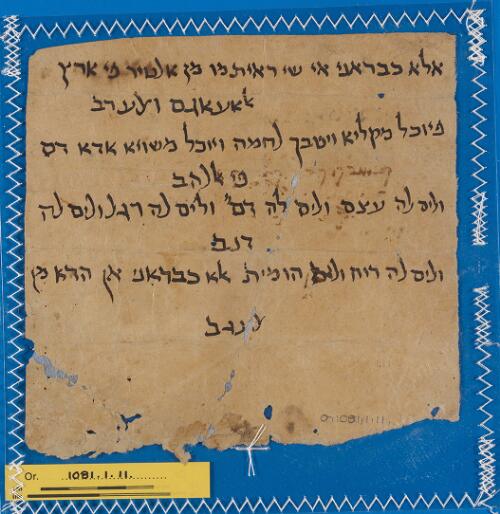 אלא כבראני אי שי ראיתמו מן אלטיר פי ארץ
אלאעאגם ואלערב
פיוכל מקליא ויטבך לחמה ויוכל משויא אדא דס
פי אללהב
וליס לה עצם וליס לה דם׳ וליס לה רגל וליס לה
דנב
וליס לה רוח וליס הו מית אלא כבראני אן הדא מן
אלעגב
Or.1081.1.11.
Or. 1081.1.11.